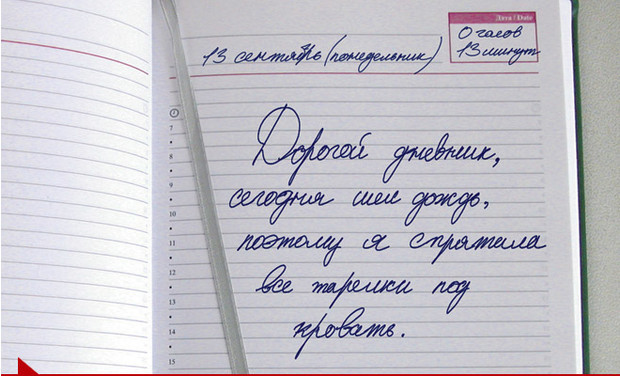 Дата / Date
0 часов
13 минут
13 сентябрь (понедельник)
Дорогой дневник,
7
8
сегодня шел дождь,
9
10
поэтому я спрятала
11
12
все тарелки под
13
14
кровать.
15